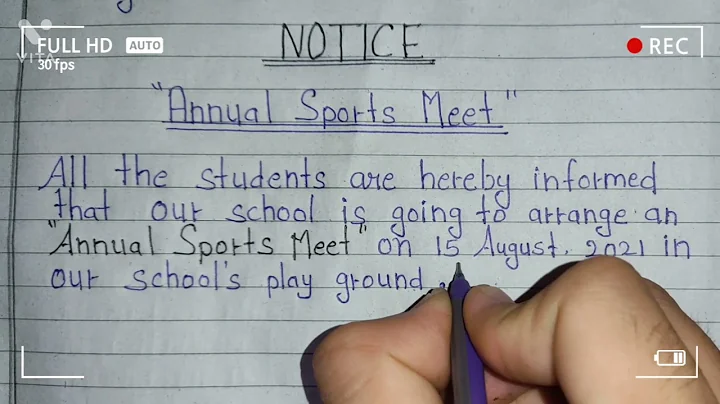 FULL HD AUTO
REC
30 fps
VITA
NOTICE
"Annual Sports Meet"
All the students are hereby informed
that our school is going to arrange an
"Annual Sports Meet" on 15 August, 2021 in
our school's play ground